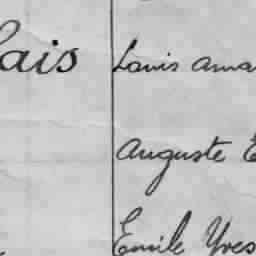 ais Louis ama
Auguste E
Emile Yves